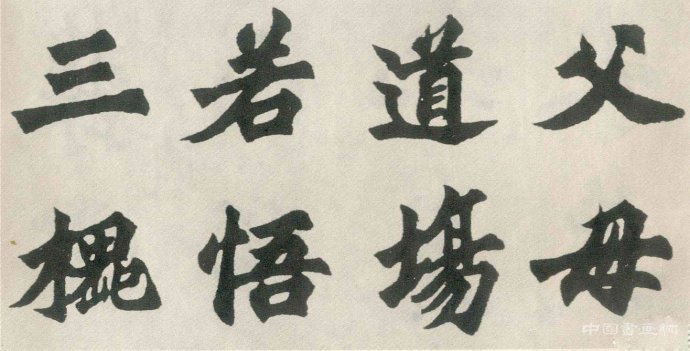 父母
道場
若悟
三
中国书画网